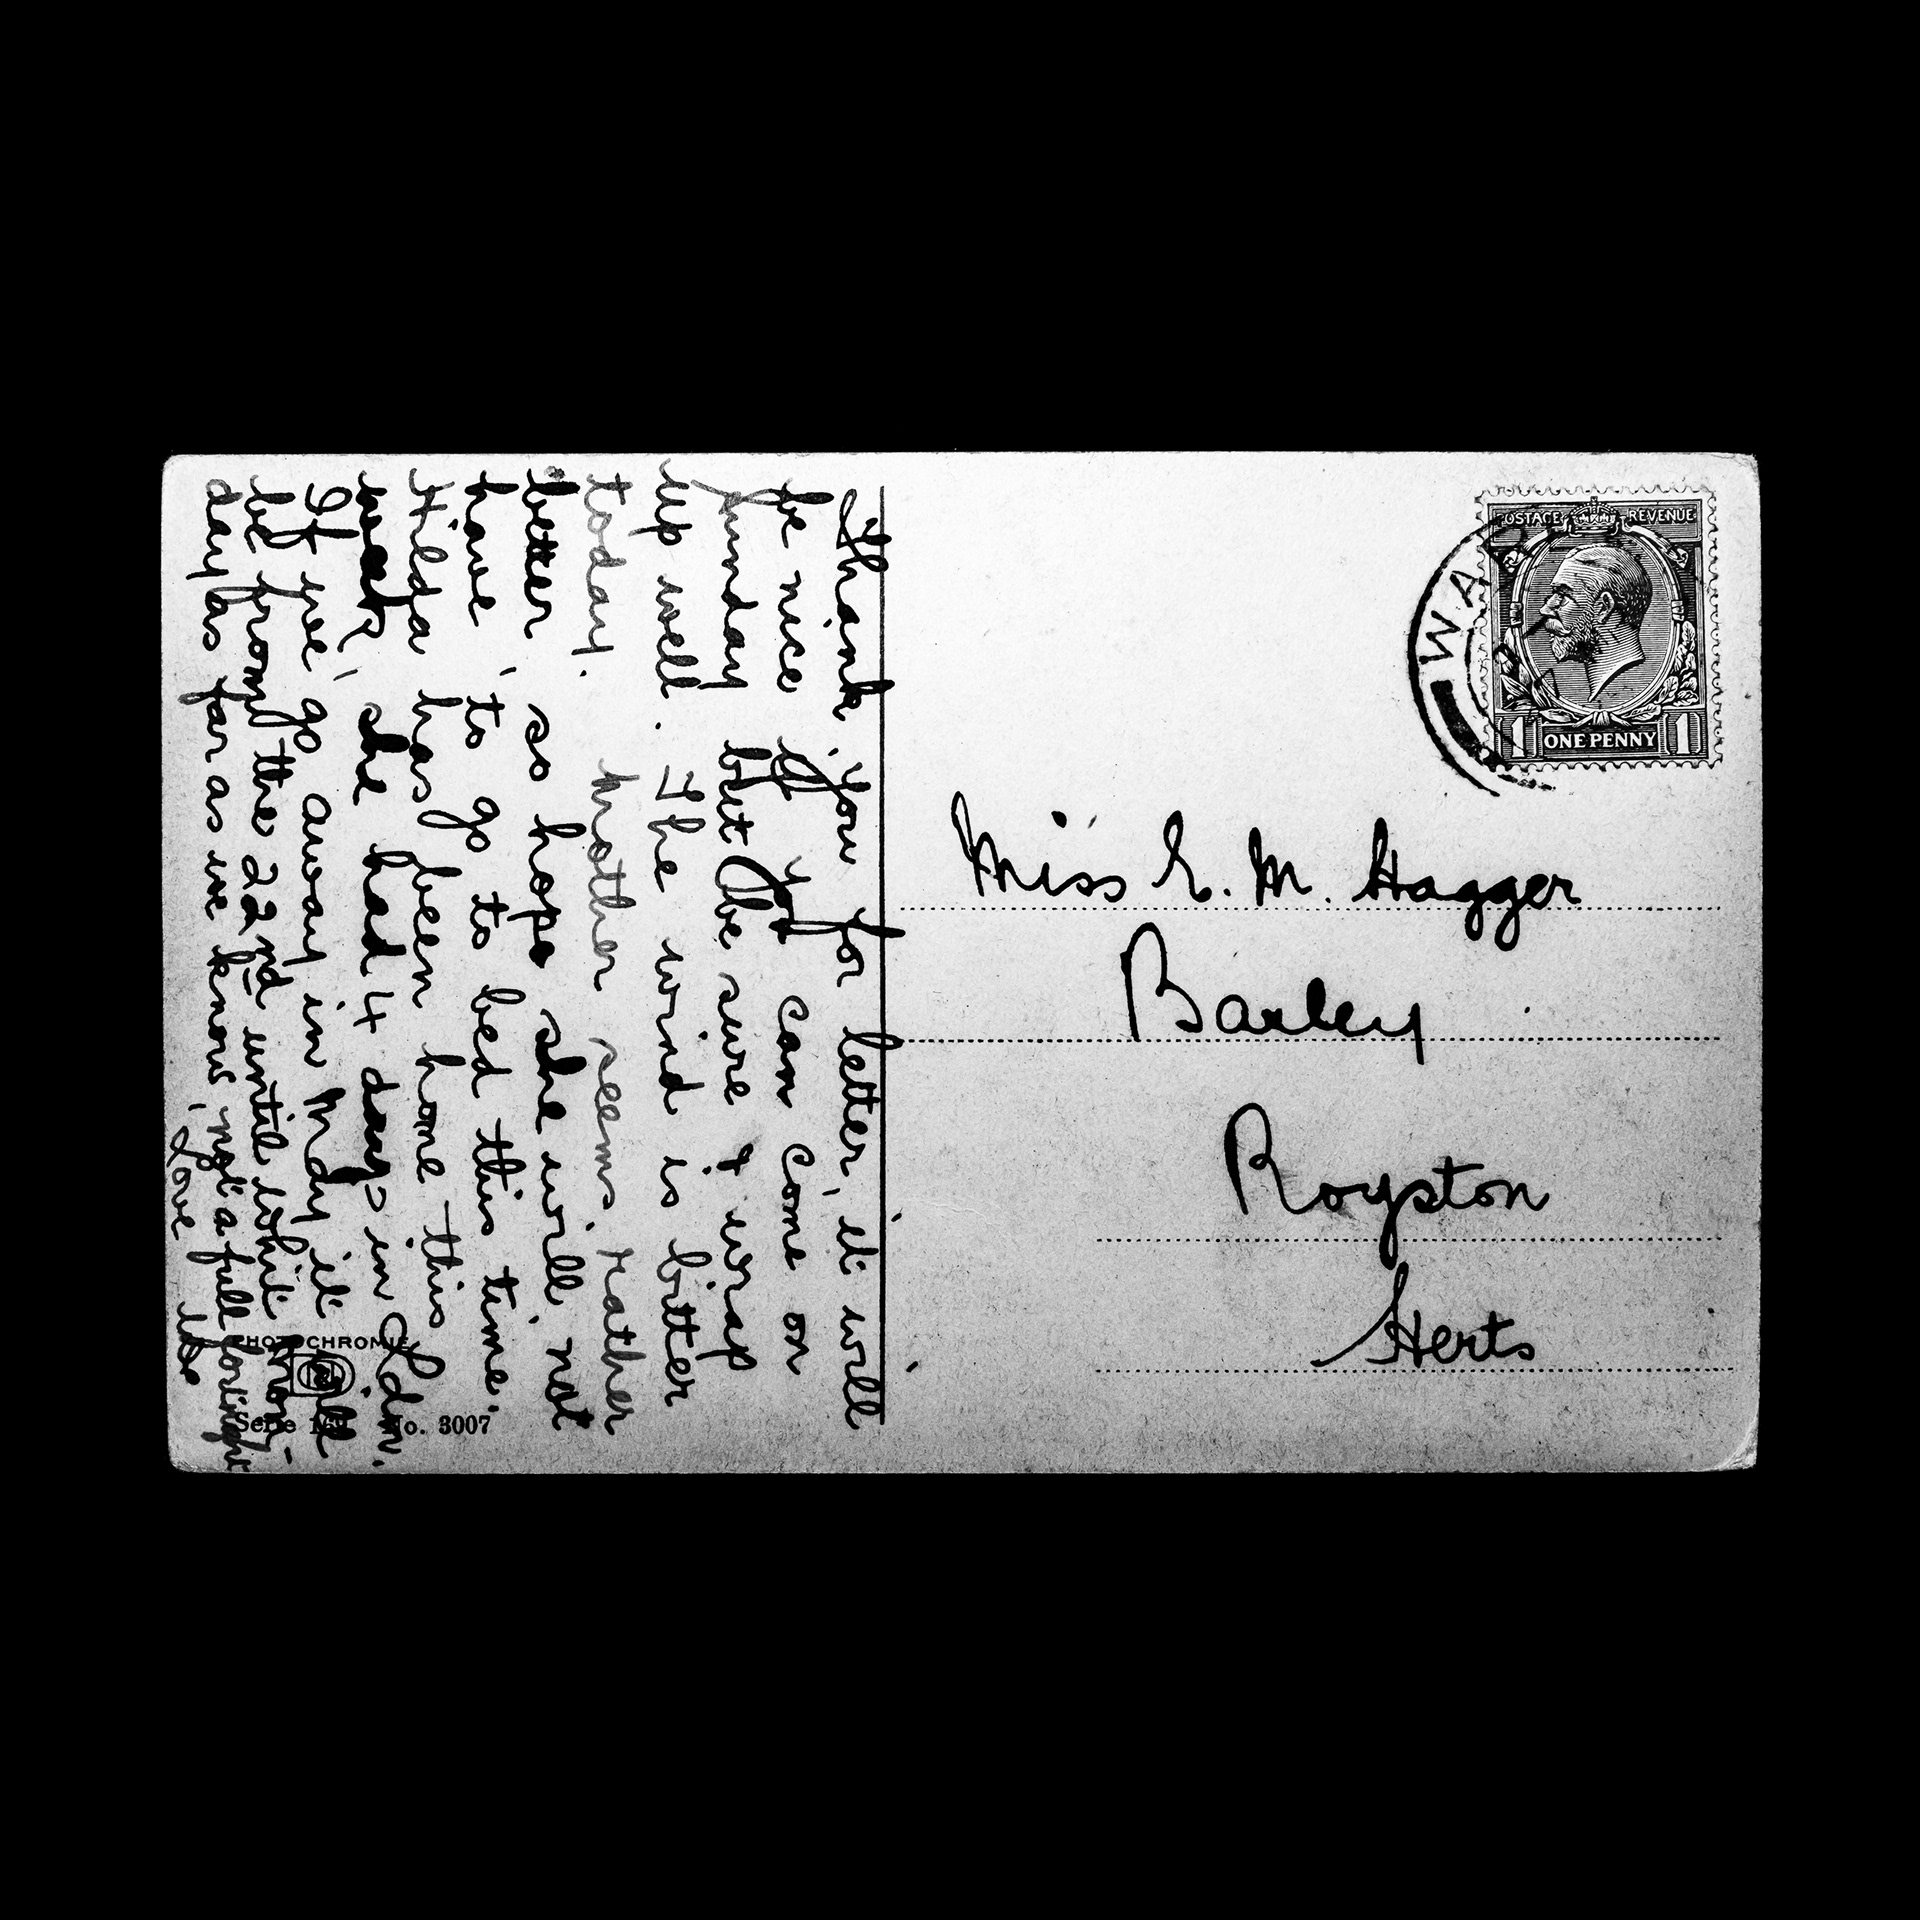 Thank you for letter, it will
be nice if you can come on
Sunday but be sure & wrap
up well. The wind is bitter
today. Mother seems rather
better, so hope she will not
have to go to bed this time.
Hilda has been home this
week, she had 4 days in Ldn.
If we go away in May it will
be from the 22nd until Whit Mon-
day as far as we know, not a full fortnight
Love
PHOTOCHROMIE
Serie No. 3007
POSTAGE REVENUE
1 ONE PENNY 1
WA
Miss E. M. Hagger
Barley
Royston
Herts